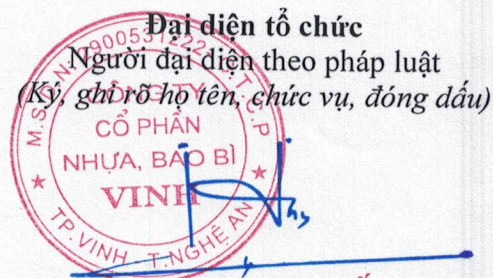 Đại diện tổ chức
Người đại diện theo pháp luật
(Ký, ghi rõ họ tên, chức vụ, đóng dấu)
M.S.D.N: 2900531222 - C.T.C.P
CÔNG TY
CỔ PHẦN
NHỰA, BAO BÌ
VINH
TP.VINH - T.NGHỆ AN